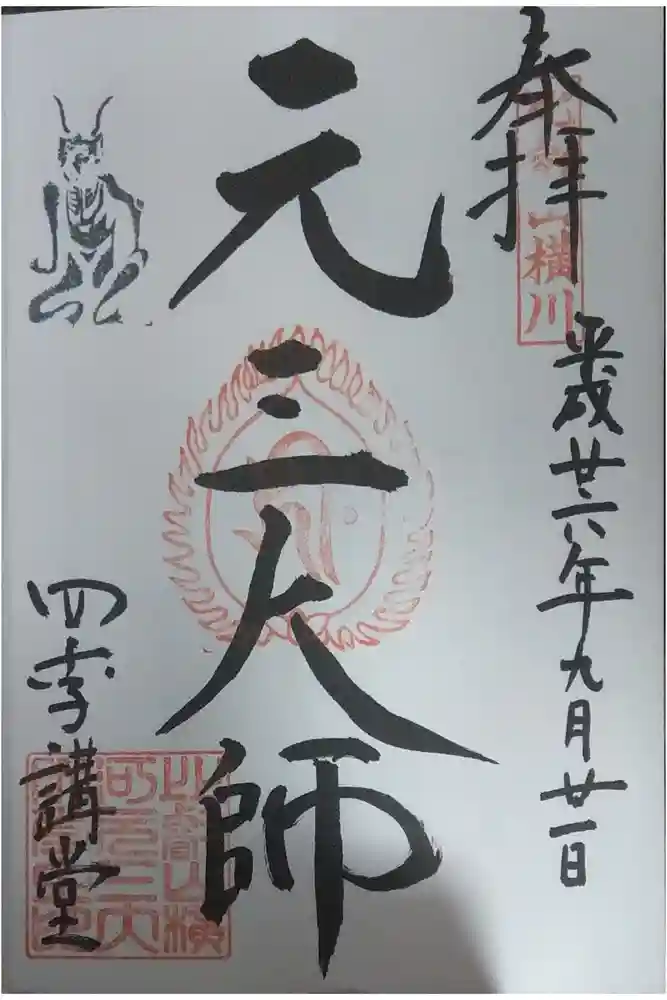 奉拝
横川
平成廿六年九月廿一日
元三大師
四季講堂